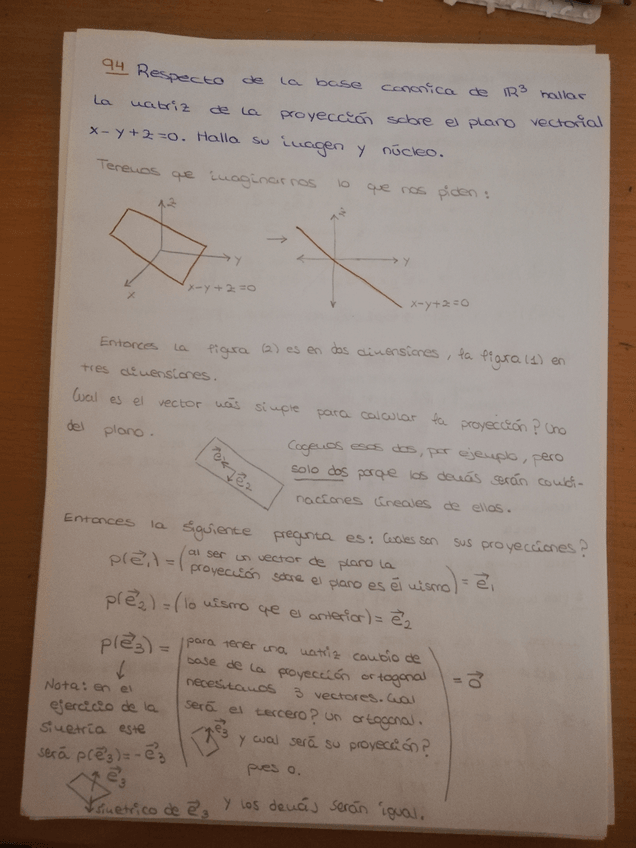 94 Respecto de la base canonica de ℝ³ hallar
la matriz de la proyección sobre el plano vectorial
x-y+z=0. Halla su imagen y núcleo.
Tenemos que imaginarnos lo que nos piden:
z
y
x
x-y+z=0
→
z
y
x-y+z=0
Entonces la figura (2) es en dos dimensiones, la figura (1) en
tres dimensiones.
Cual es el vector más simple para calcular la proyección? Uno
del plano.
e⃗₁
e⃗₂
Cogemos esos dos, por ejemplo, pero
solo dos porque los demás serán combi-
naciones lineales de ellos.
Entonces la siguiente pregunta es: Cuales son sus proyecciones?
p(e⃗₁) = (al ser un vector de plano la
proyección sobre el plano es él mismo) = e⃗₁
p(e⃗₂) = (lo mismo que el anterior) = e⃗₂
p(e⃗₃) = (para tener una matriz cambio de
base de la proyección ortogonal
necesitamos 3 vectores. Cual
será el tercero? Un ortogonal.
e⃗₃ y cual será su proyección?
pues 0.) = 0⃗
↓
Nota: en el
ejercicio de la
simetría este
será p(e⃗₃) = -e⃗₃
e⃗₃
simetrico de e⃗₃ y los demás serán igual.